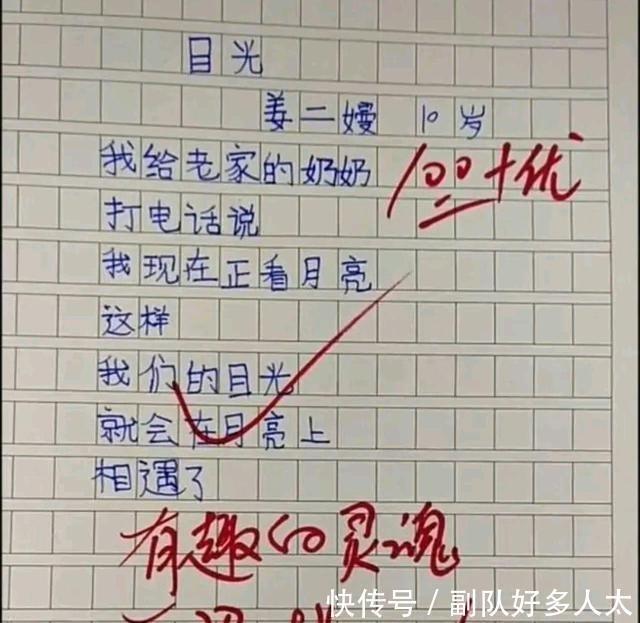 目光
姜二嫚 10岁
我给老家的奶奶
100+优
打电话说
我现在正看月亮
这样
我们的目光
就会在月亮上
相遇了
有趣的灵魂
快传号/副队好多人太